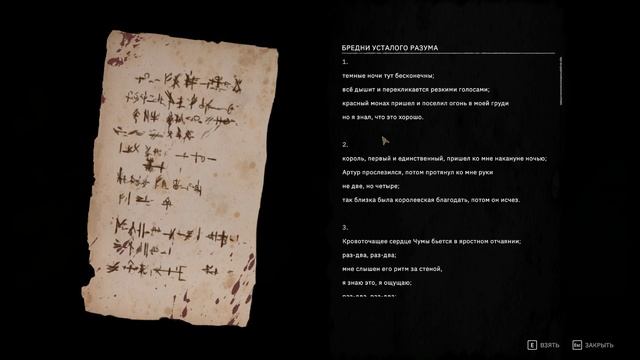 БРЕДНИ УСТАЛОГО РАЗУМА
1.
темные ночи тут бесконечны;
всё дышит и перекликается резкими голосами;
красный монах пришел и поселил огонь в моей груди
но я знал, что это хорошо.
2.
король, первый и единственный, пришел ко мне накануне ночью;
Артур прослезился, потом протянул ко мне руки
не две, но четыре;
так близка была королевская благодать, потом он исчез.
3.
Кровоточащее сердце Чумы бьется в яростном отчаянии;
раз-два, раз-два;
мне слышен его ритм за стеной,
я знаю это, я ощущаю;
раз-два, раз-два;
E ВЗЯТЬ
ЗАКРЫТЬ